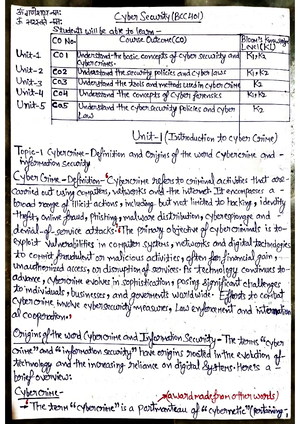 ॐ गणेशाय नमः
Cyber Security (BCC401)
Students will be able to learn -
CO No Course Outcome (CO) Bloom's Knowledge Level (KL)
Unit-1 CO1 Understand the basic concepts of cyber security and cybercrimes. K1, K2
Unit-2 CO2 Understand the security policies and cyber laws K1, K2
Unit-3 CO3 Understand the tools and methods used in cyber crime K2
Unit-4 CO4 Understand the concepts of cyber forensics K2
Unit-5 CO5 Understand the cyber security policies and cyber Law K2
Unit-1 (Introduction to Cyber Crime)
Topic-1 Cybercrime - Definition and Origins of the word Cybercrime and
information Security
Cyber Crime - Definition - Cybercrime refers to criminal activities that are
carried out using computers, networks and the internet. It encompases a
broad range of illicit actions, including but not limited to hacking, identity
theft, online fraud, phishing, malware distribution, cyberespionage and
denial-of service attacks. The primary objective of cybercriminals is to
exploit vulnerabilities in computer systems, networks and digital technologies
to commit fraudulent or malicious activities, often for financial gain,
unauthorized access, or disruption of services. As technology continues to
advance, cybercrime evolves in sophistication, posing significant challenges
to individuals, businesses, and governments worldwide. Efforts to combat
cybercrime involve cybersecurity measures, Law enforcement and international
cooperation.
Origins of the word Cybercrime and Information Security - The terms "cyber
crime" and "information security" have origins rooted in the evolution of
technology and the increasing reliance on digital systems. Here's a
brief overview:
Cybercrime -
(a word made from other words)
The term "cybercrime" is a portmanteau of "cybernetic" (pertaining